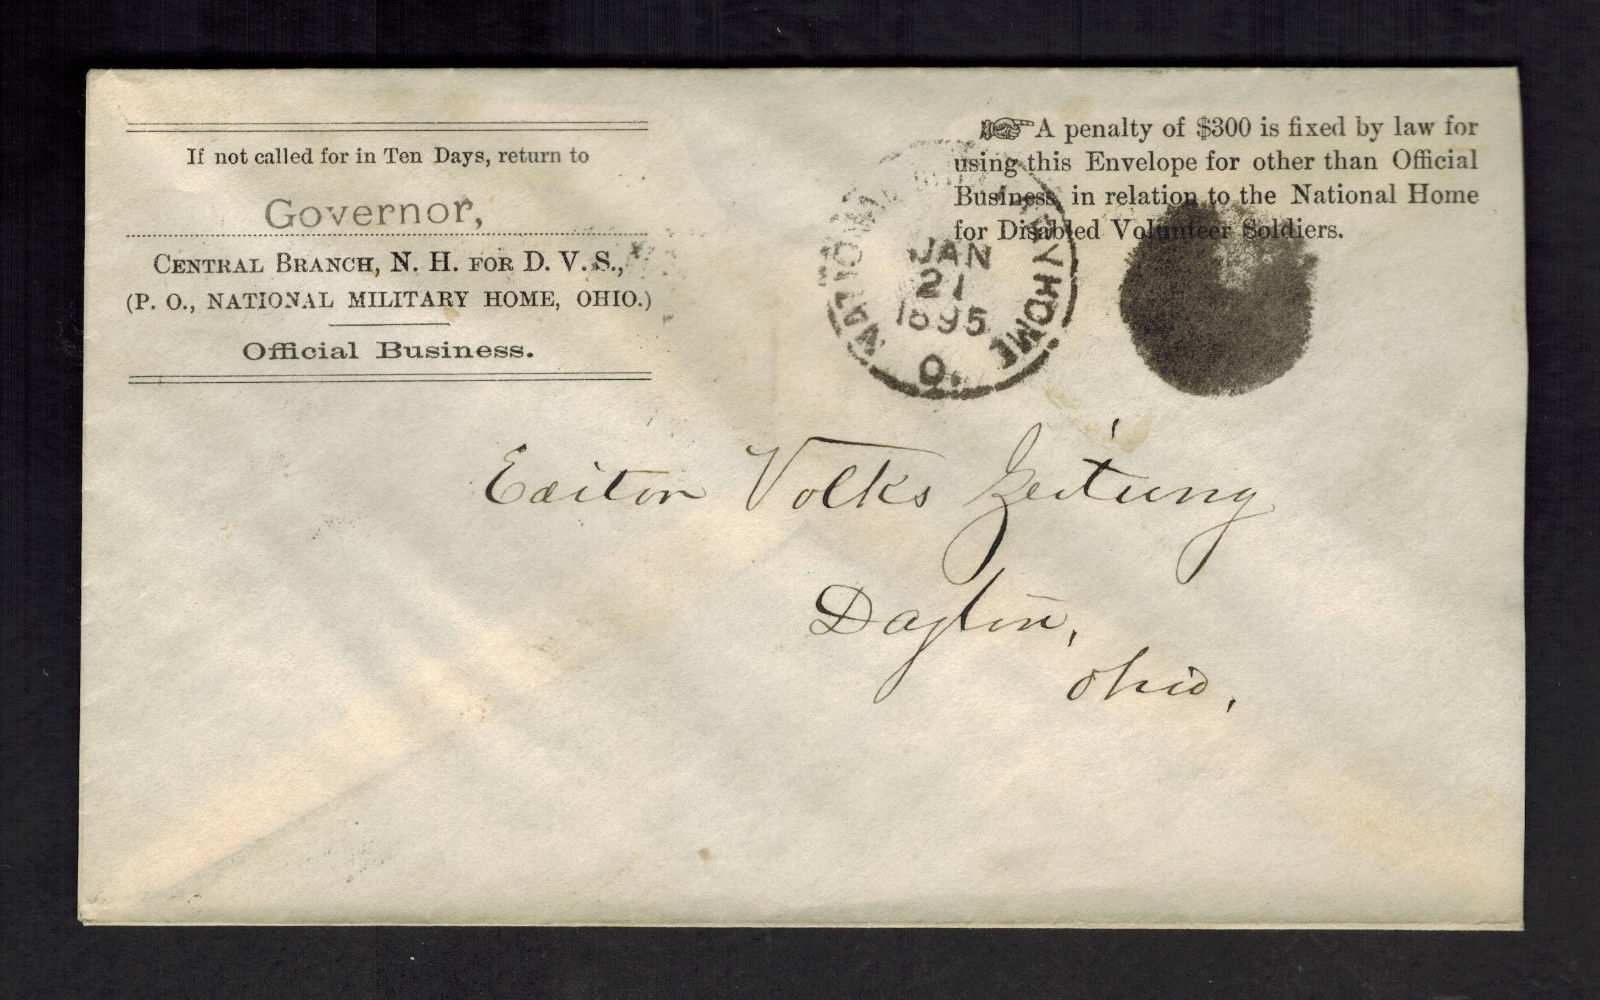 If not called for in Ten Days, return to
Governor,
CENTRAL BRANCH, N. H. FOR D. V. S.,
(P. O., NATIONAL MILITARY HOME, OHIO.)
Official Business.
☞ A penalty of $300 is fixed by law for
using this Envelope for other than Official
Business, in relation to the National Home
for Disabled Volunteer Soldiers.
HOME
JAN
21
1895
O.
Editor Volks Zeitung
Dayton,
Ohio,